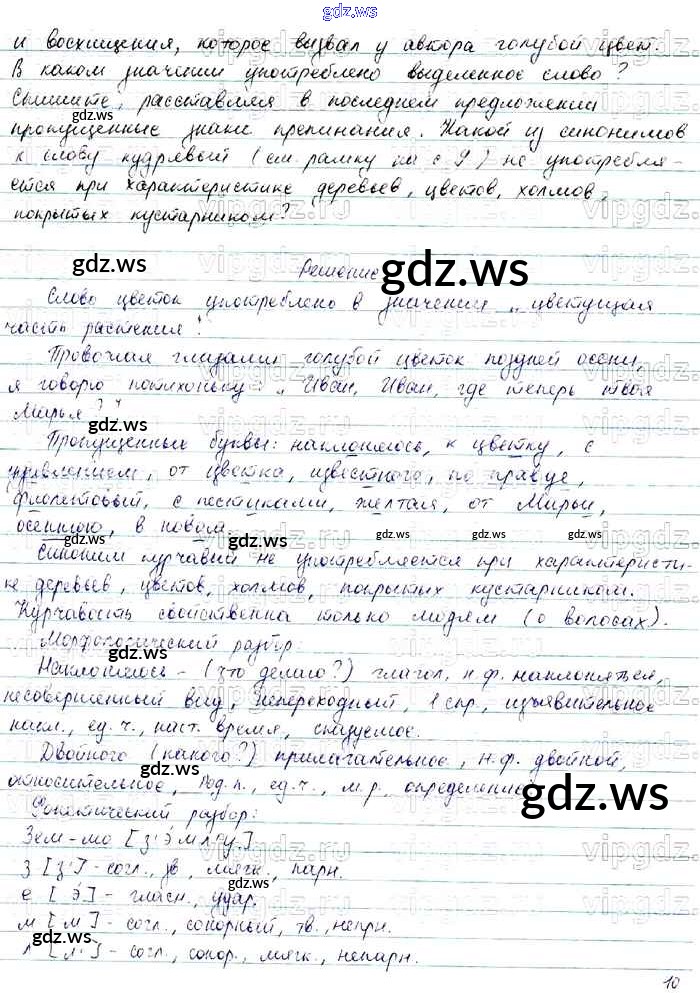 gdz.ws
и восхищения, которое вызвал у автора голубой цвет.
В каком значении употреблено выделенное слово?
Спишите, расставляя в последнем предложении
пропущенные знаки препинания. Какой из синонимов
к слову кудрявый (см. рамку на с 9) не употребля-
ется при характеристике деревьев, цветов, холмов,
покрытых кустарником?
gdz.ws
Решение
gdz.ws
Слово цветок употреблено в значении „цветущая
часть растения".
Провожая глазами голубой цветок поздней осени,
я говорю потихоньку: „Иван, Иван, где теперь твоя
Марья?"
gdz.ws
Пропущенные буквы: наклоняюсь, к цветку, с
от цветка, известного, по правде,
фиолетовый, с пестиками, желтая, от Марьи,
осеннюю, в новом.
gdz.ws gdz.ws gdz.ws
Синоним курчавый не употребляется при характеристи-
ке деревьев, цветов, холмов, покрытых кустарником.
Курчавость свойственна только людям (о волосах).
Морфологический разбор:
gdz.ws
Наклоняюсь - (что делаю?) глагол, н.ф. наклоняться,
несовершенный вид, непереходный, 1 спр., изъявительное
накл., ед.ч., наст. время, сказуемое.
Двойного (какого?) прилагательное, н.ф. двойной,
относительное, Род.п., ед.ч., м.р., определение
gdz.ws
gdz.ws
Фонетический разбор:
Зем-лю [з'эмл'у].
з [з'] - согл., зв, мягк., парн.
е [э] - гласн., удар.
gdz.ws
м [м] - согл., сонорный, тв., непрн.
л [л'] - согл., сонор., мягк., непарн.
gdz.ws
gdz.ws
10